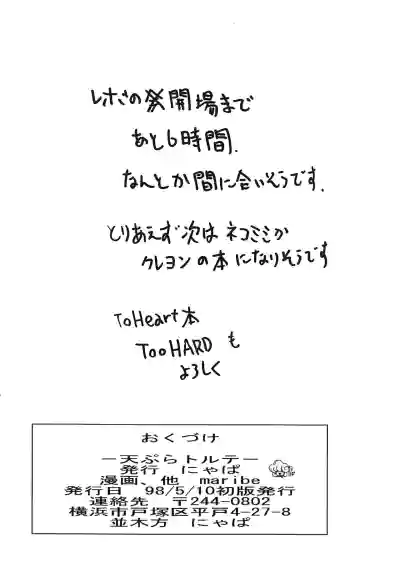 レホさの祭開場まで
あと6時間.
なんとか間に合いそうです.
とりあえず次は ネコミミか
クレヨンの本になりそうです
ToHeart本
TooHARD も
よろしく
おくづけ
ー天ぷらトルテー
発行 にゃぱ
漫画、他 maribe
発行日 98/5/10初版発行
連絡先 〒244-0802
横浜市戸塚区平戸4-27-8
並木方 にゃぱ